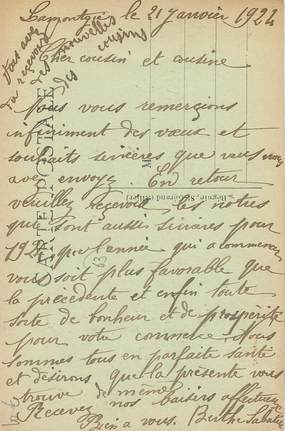 le 21 Janvier 1924
Vous avez
la recevoir
des nouvelles
des cousins
Cher cousin et cousine
Nous vous remerçions
infiniment des vœux et
souhaits sincères que vous nous
avez envoyez. En retour
veuillez reçevoir les notres
qui sont aussi sincères pour
1924 que l'année qui a commencer
vous soit plus favorable que
la precedente et enfin toute
sorte de bonheur et de prospérité
pour votre commerce. Nous
sommes tous en parfaite santé
et désirons que la présente vous
trouve de même
Recevez nos baisers affectueux
Bien a vous. Berthe
CARTE POSTALE